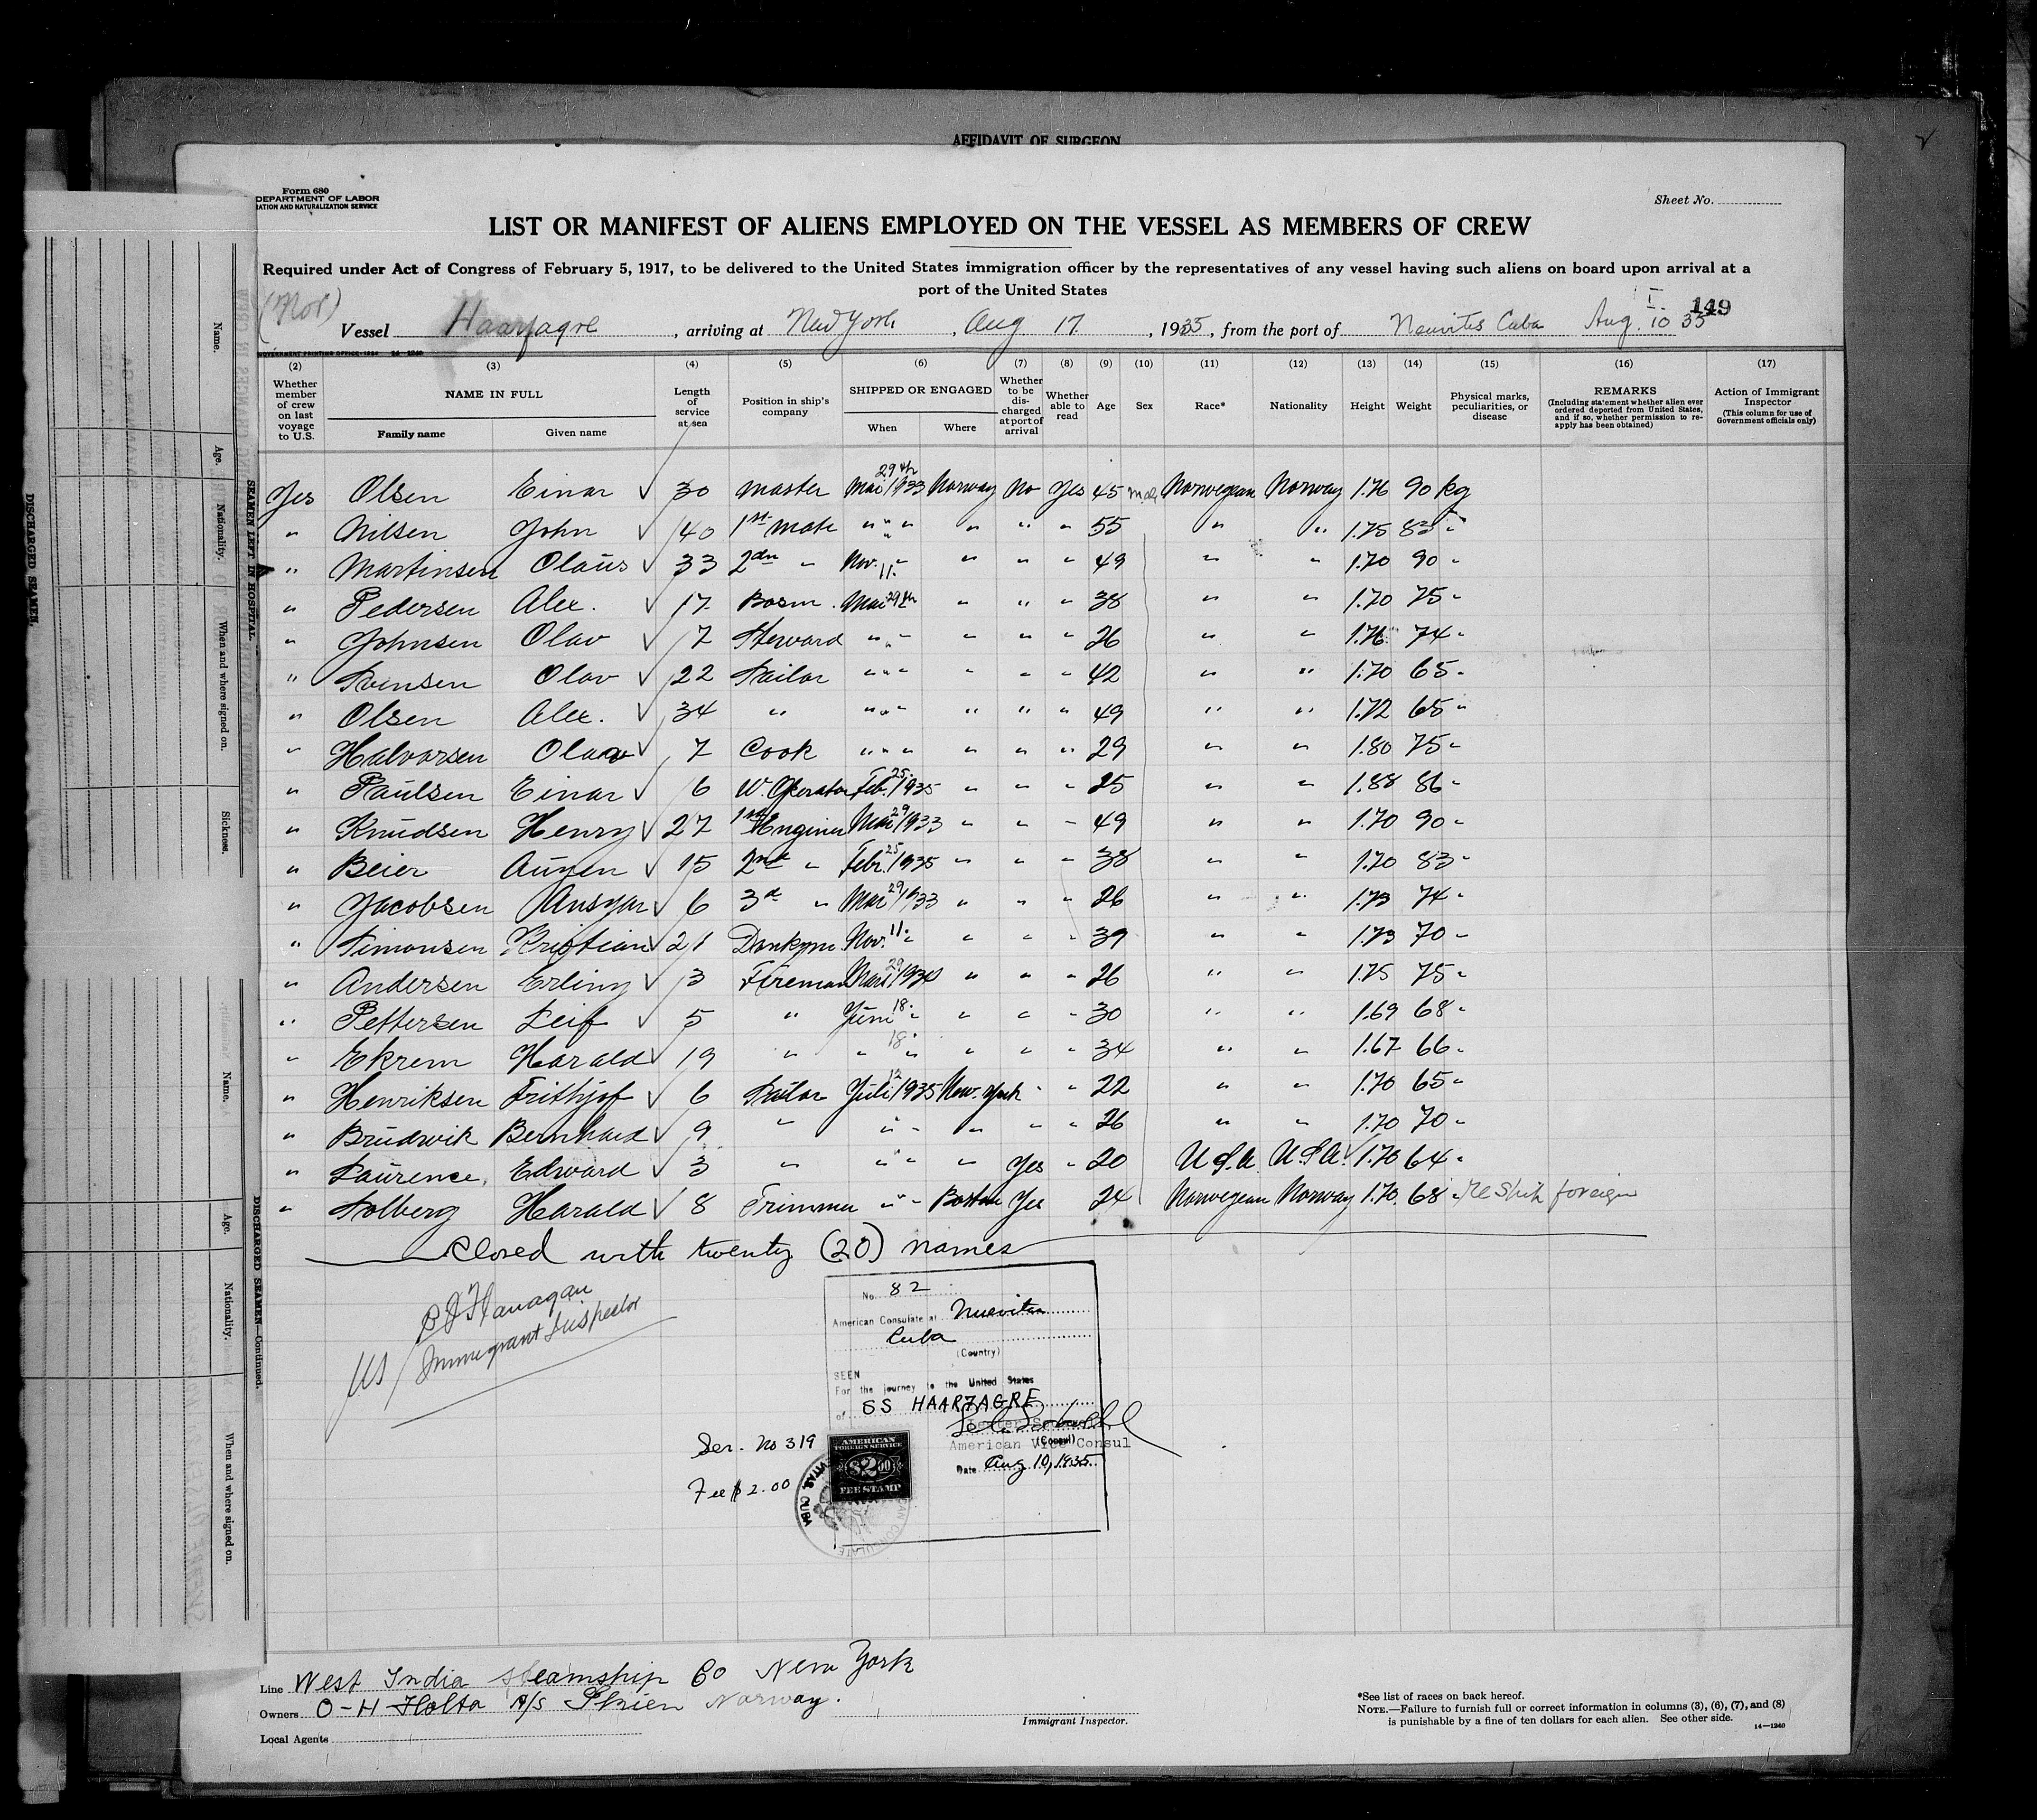 AFFIDAVIT OF SURGEON
Form 680
DEPARTMENT OF LABOR
RATION AND NATURALIZATION SERVICE
Sheet No.
LIST OR MANIFEST OF ALIENS EMPLOYED ON THE VESSEL AS MEMBERS OF CREW
Required under Act of Congress of February 5, 1917, to be delivered to the United States immigration officer by the representatives of any vessel having such aliens on board upon arrival at a
port of the United States
149
(Nor)
Vessel Haarfagre, arriving at New York, Aug 17, 1935, from the port of Neuvites Cuba Aug. 10 35
(2) (3) (4) (5) (6) (7) (8) (9) (10) (11) (12) (13) (14) (15) (16) (17)
Whether member of crew on last voyage to U.S.
NAME IN FULL
Family name Given name
Length of service at sea
Position in ship's company
SHIPPED OR ENGAGED
When Where
Whether to be discharged at port of arrival
Whether able to read
Age
Sex
Race*
Nationality
Height
Weight
Physical marks, peculiarities, or disease
REMARKS
(Including statement whether alien ever ordered deported from United States, and if so, whether permission to reapply has been obtained)
Action of Immigrant Inspector
(This column for use of Government officials only)
Yes Olsen Einar ✓ 30 master Mai 29th 1933 Norway No Yes 45 Male Norwegian Norway 1.76 90 kg
" Nilsen John ✓ 40 1st mate " " " " " " 55 " " 1.75 83 "
" Martinsen Olaus ✓ 33 2dn " Nov. 11. " " " " 49 " " 1.70 90 "
" Pedersen Alex. ✓ 17 Bosm. Mai 29th " " " 38 " " 1.70 75 "
" Johnsen Olav ✓ 7 Steward " " " " " 26 " " 1.76 74 "
" Svensen Olav ✓ 22 Sailor " " " " " " 42 " " 1.70 65 "
" Olsen Alex. ✓ 34 " " " " " " " 49 " " 1.72 65 "
" Halvorsen Olav ✓ 7 Cook " " " " " " 29 " " 1.80 75 "
" Paulsen Einar ✓ 6 W. Operator Feb. 25. 1935 " " " 25 " " 1.88 86 "
" Knudsen Henry ✓ 27 1st Enginer Mai 29 1933 " " " 49 " " 1.70 90 "
" Beier ✓ 15 2nd " Febr. 25 1935 " " " 38 " " 1.70 83 "
" Jacobsen Ansgar ✓ 6 3d " Mai 29 1933 " " " 26 " " 1.73 74 "
" Simonsen Kristian ✓ 21 Donkym. Nov. 11. " " " " 39 " " 1.73 70 "
" Andersen Erling ✓ 3 Fireman 29 1934 " " " 26 " " 1.75 75 "
" Pettersen Leif ✓ 5 " Juni 18. " " " " 30 " " 1.69 68 "
" Ekrem Harald ✓ 19 " " 18. " " " " 34 " " 1.67 66 "
" Henriksen Frithjof ✓ 6 Sailor Juli 12 1935 New-York " " 22 " " 1.70 65 "
" Brudwik Bernhard ✓ 9 " " " " " " 26 " " 1.70 70 "
" Laurence, Edward ✓ 3 " " " " Yes " 20 U.S.A. U.S.A. ✓ 1.70 64 "
" Solberg Harald ✓ 8 Trimmer " " Boston Yes 24 Norwegian Norway 1.70 68 " reship foreign
Closed with twenty (20) names
Flanagan
US Immigrant Inspector
No. 82
American Consulate at Nuevitas
Cuba
(Country)
SEEN
For the journey to the United States
of SS HAARFAGRE
(Consul)
American Vice Consul
Date Aug 10, 1935
Ser. No 319
Fee $2.00
AMERICAN
FOREIGN SERVICE
$2.00
FEE STAMP
Line West India Steamship Co New York
Owners O-H-Holta A/S Skien Norway.
Local Agents
Immigrant Inspector.
*See list of races on back hereof.
NOTE.—Failure to furnish full or correct information in columns (3), (6), (7), and (8)
is punishable by a fine of ten dollars for each alien. See other side.
14—1240
DISCHARGED SEAMEN.
Name.
Age.
Nationality.
When and where signed on.
Sickness.
SEAMEN LEFT IN HOSPITAL
Name.
Age.
Nationality.
When and where signed on.
DISCHARGED SEAMEN—Continued.